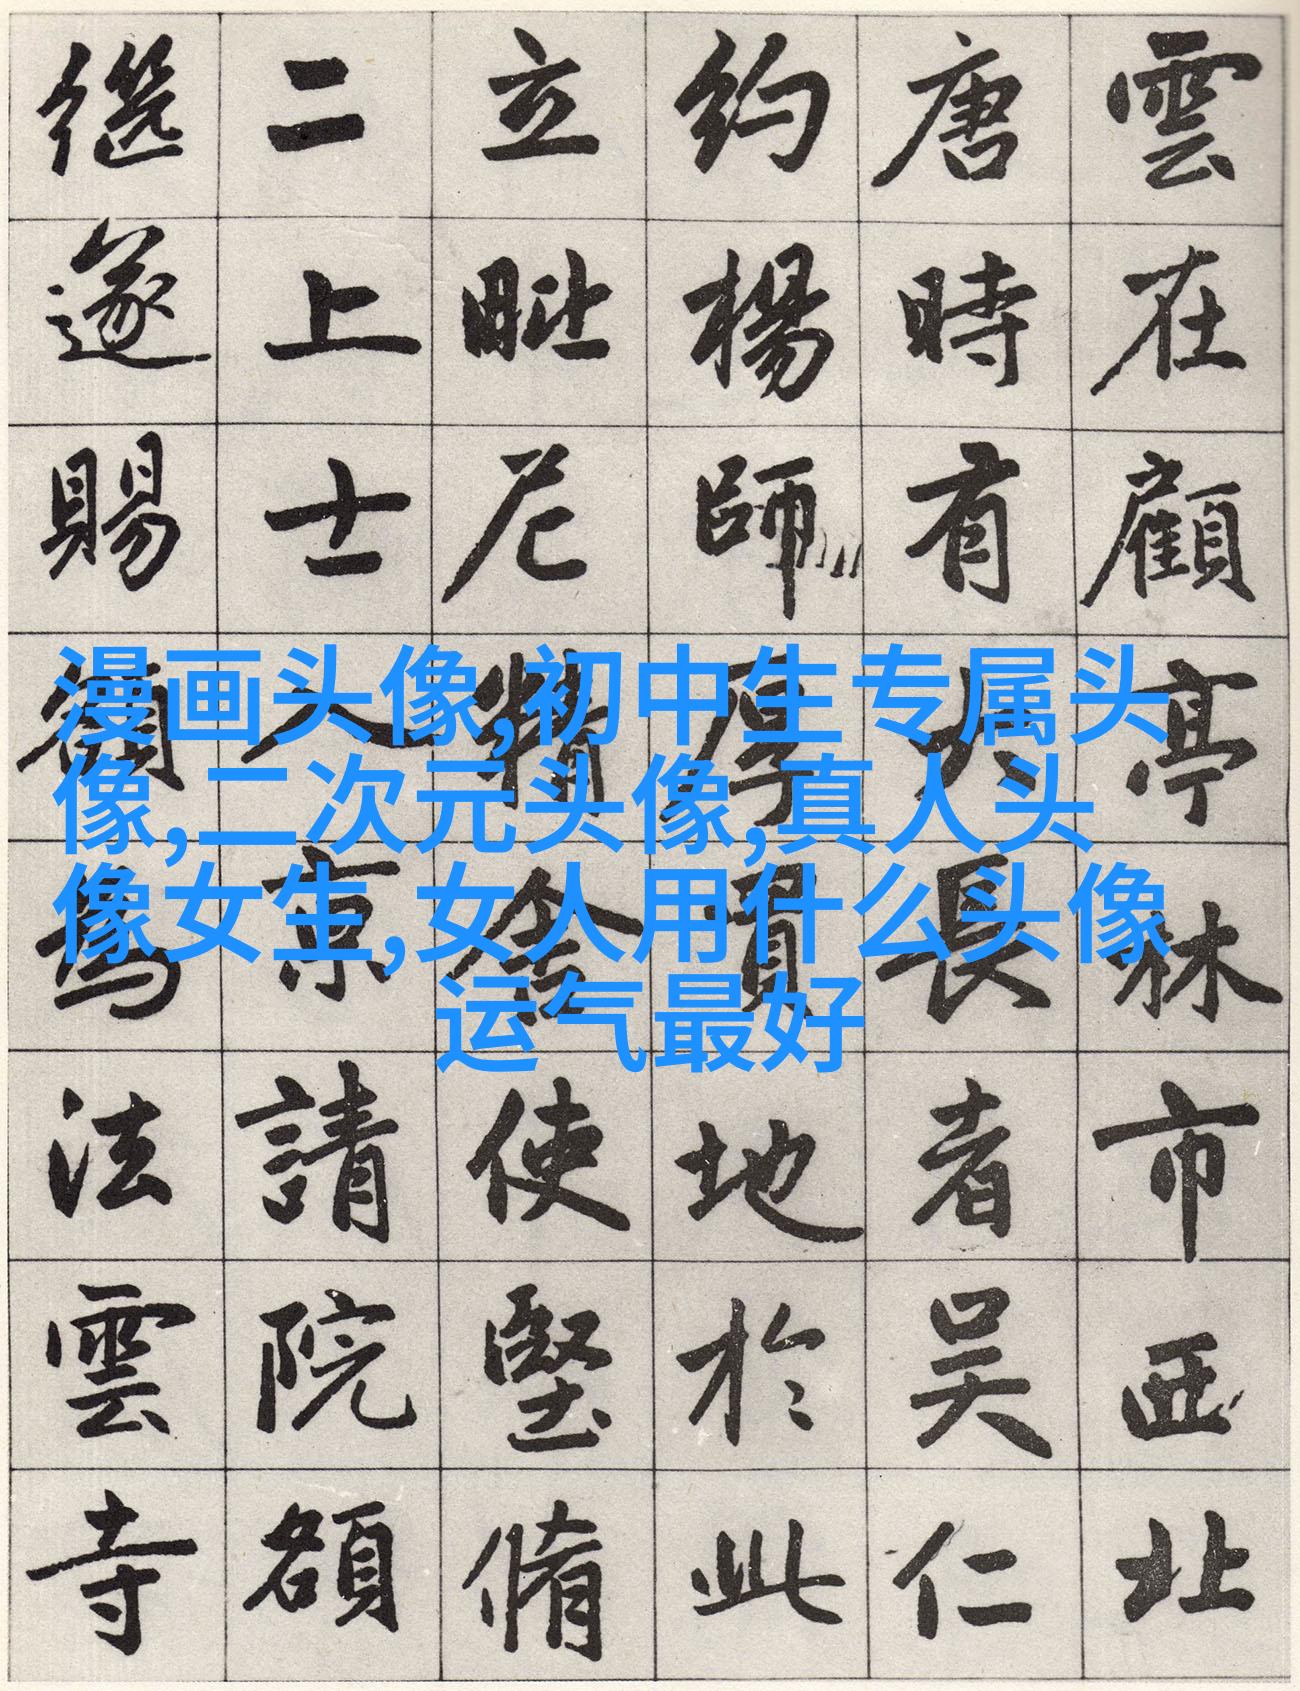 雲在顧亭林市西北
唐時有大長者吴仁
約楊師厚買地於此
立毗尼精舍使堅脩
二上士入京請院額
遂賜額為法雲寺
漫画头像,初中生专属头
像,二次元头像,真人头
像女生,女人用什么头像
运气最好